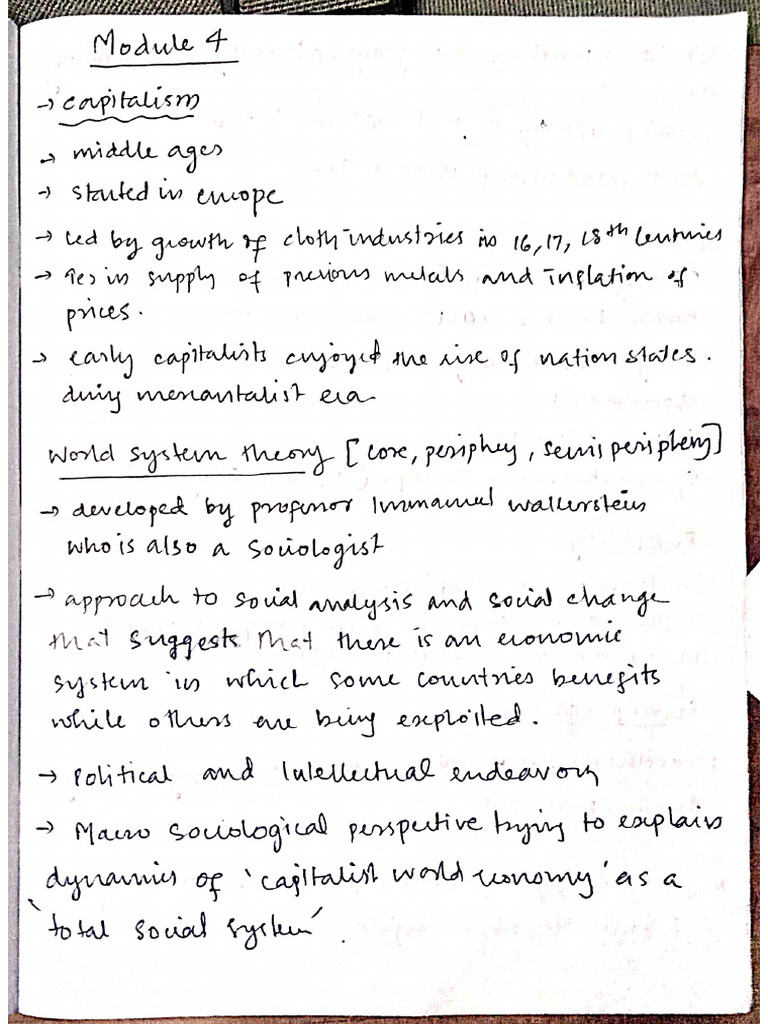 Module 4
→ capitalism
→ middle ages
→ started in europe
→ led by growth of cloth-industries in 16, 17, 18th Centuries
→ ↑es in supply of precious metals and inflation of
prices.
→ early capitalists enjoyed the rise of nation states.
during mercantalist era
World system theory [core, periphey, semi periphery]
→ developed by professor Immanuel wallerstein
who is also a sociologist
→ approach to social analysis and social change
that suggests that there is an economic
system in which some countries benefits
while others are being exploited.
→ Political and Intellectual endeavory
→ Macro sociological perspective trying to explain
dynamics of 'capitalist world economy' as a
'total social system'.